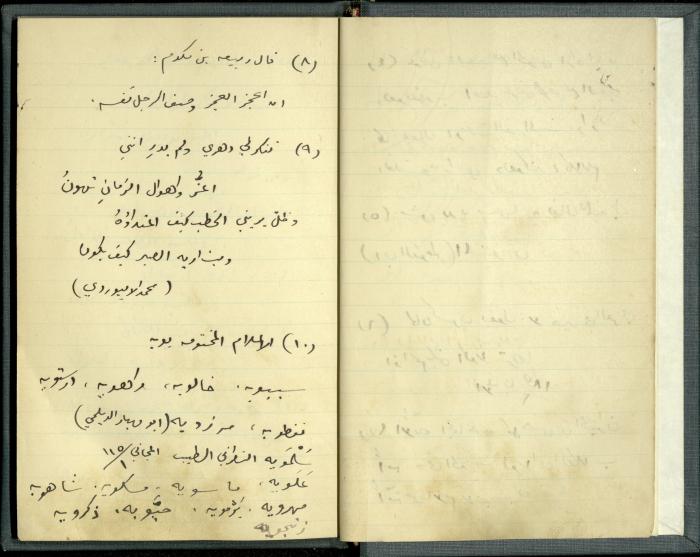 (٨) قال ربيعه بن مكدم :
ان اعجز العجز وصف الرجل نفسه.
(٩) تنكر لي دهري ولم يدرِ انني
اعزُّ واهوال الزمانِ تهونُ
وظل يريني الخطب كيف اعتداؤهُ
وبت اريه الصبر كيف يكون
(محمد الابيوردي)
(١٠) الاعلام المختومه بويه
سيبويه، خالويه، راهويه، درستويه
نفطويه، مرزويه (ابو مهيار الديلمي)
سَلْمَويه النصراني الطبيب المجاني
عَلَويه، ماسويه، مسكويه، شاهويه
مهرويه، حيّويه، ذكرويه
زنجويه